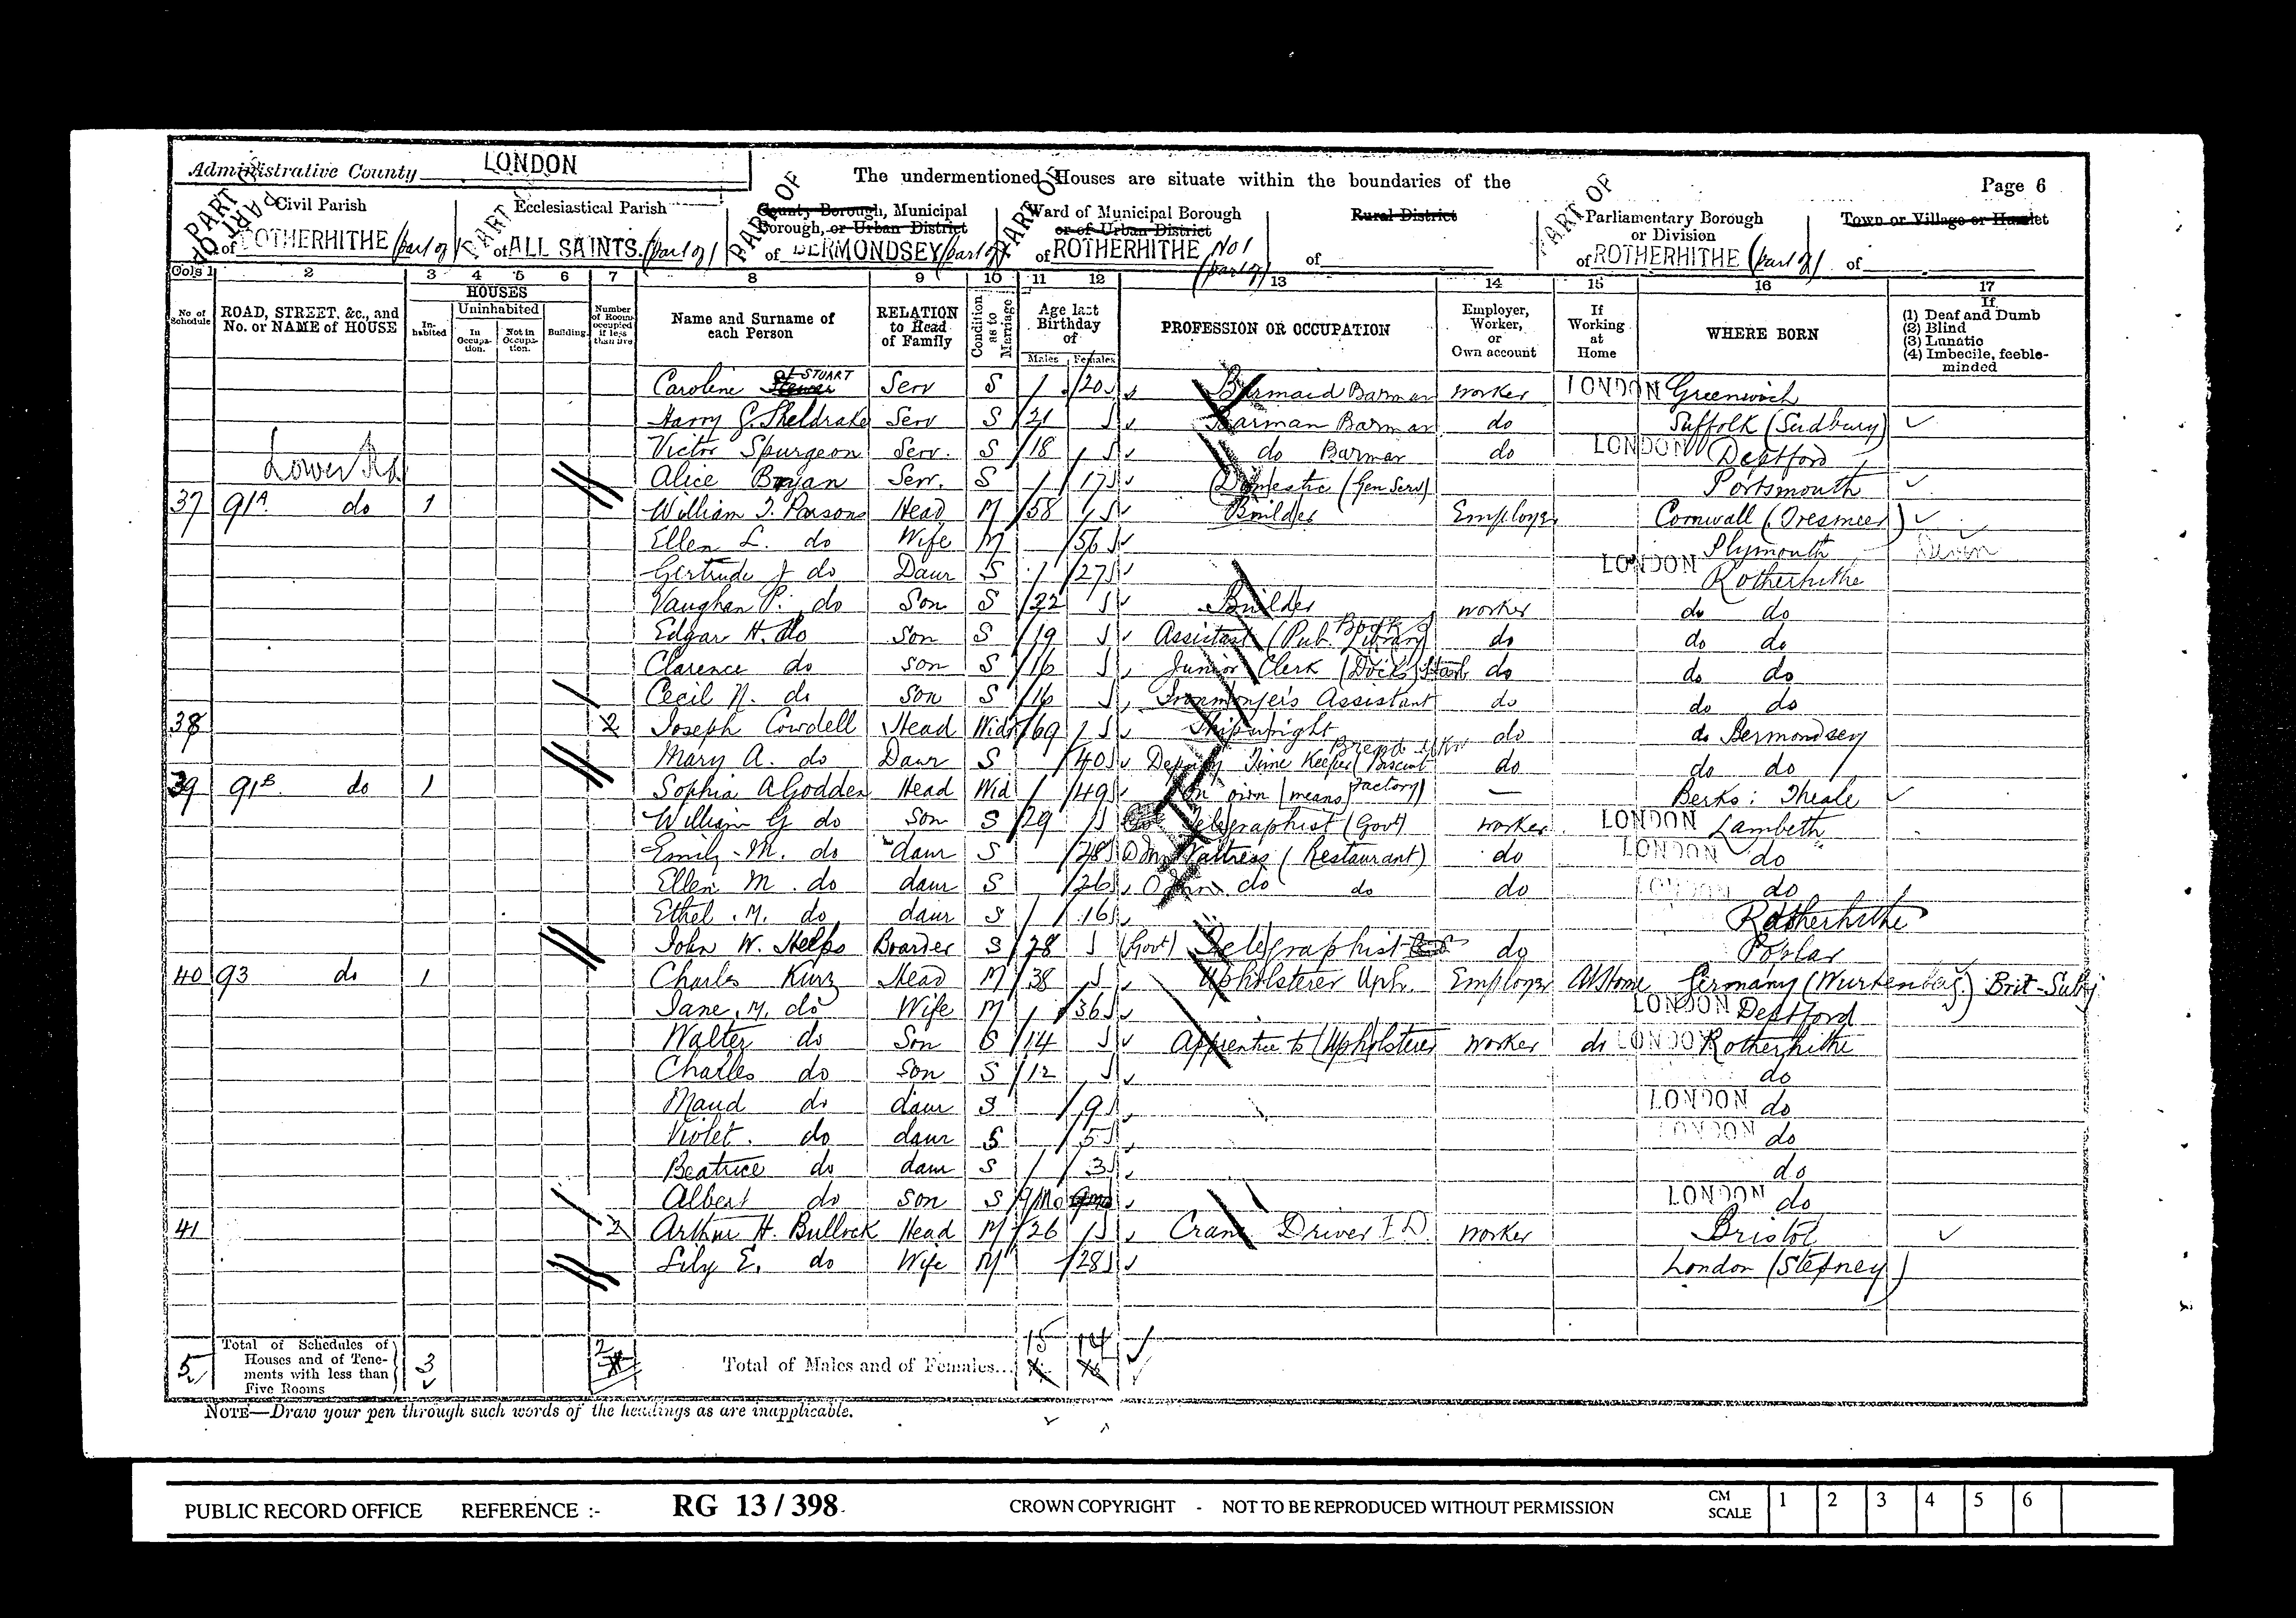 Administrative County LONDON
The undermentioned Houses are situate within the boundaries of the
Page 6
PART OF
PART OF
PART OF
PART OF
PART OF
PART OF
Civil Parish of ROTHERHITHE (part of)
Ecclesiastical Parish of ALL SAINTS. (part of)
County Borough, Municipal Borough, or Urban District of BERMONDSEY (part of)
Ward of Municipal Borough or of Urban District of ROTHERHITHE No 1 (part of)
Rural District of
Parliamentary Borough or Division of ROTHERHITHE (part of)
Town or Village or Hamlet of
Cols 1 2 3 4 5 6 7 8 9 10 11 12 13 14 15 16 17
No of Schedule
ROAD, STREET, &c., and No. or NAME of HOUSE
HOUSES
Inhabited
Uninhabited
In Occupation.
Not in Occupation.
Building.
Number of Rooms occupied if less than five
Name and Surname of each Person
RELATION to Head of Family
Condition as to Marriage
Age last Birthday of
Males Females
PROFESSION OR OCCUPATION
Employer, Worker, or Own account
If Working at Home
WHERE BORN
If
(1) Deaf and Dumb
(2) Blind
(3) Lunatic
(4) Imbecile, feeble-minded
Caroline STUART Serv S 20 Barmaid Barman worker LONDON Greenwich
Harry G. Sheldrake Serv S 21 Barman Barman do Suffolk (Sudbury)
Victor Spurgeon Serv. S 18 do Barman do LONDON Deptford
Lower Rd
Alice Bryan Serv. S 17 Domestic (Gen Serv) Portsmouth
37 91A do 1 William T. Parsons Head M 58 Builder Employer Cornwall (Tresmeer)
Ellen L. do Wife M 56 Plymouth Devon
Gertrude J do Daur S 27 LONDON Rotherhithe
Vaughan P. do Son S 22 Builder worker do do
Edgar H. do Son S 19 Assistant (Pub. Library) Book do do do
Clarence do son S 16 Junior Clerk (Dock) do do do
Cecil N. do Son S 16 Ironmonger's Assistant do do do
38 2 Joseph Cowdell Head Widr 69 Shipwright do do Bermondsey
Mary A. do Daur S 40 Deputy Time Keeper (Biscuit Factory) Bread do do do
39 91B do 1 Sophia A Godden Head Wid 49 On own means — Berks: Theale
William G do Son S 29 Telegraphist (Govt) worker LONDON Lambeth
Emily M. do daur S 28 Waitress (Restaurant) do LONDON do
Ellen M. do daur S 26 do do do LONDON do
Ethel M. do daur S 16 Rotherhithe
John W. Helps Boarder S 28 (Govt) Telegraphist do Poplar
40 93 do 1 Charles Kurz Head M 38 Upholsterer Uph. Employer At Home Germany (Wurtenberg) Brit-Subj
Jane M. do Wife M 36 LONDON Deptford
Walter do Son S 14 Apprentice to (Upholsterer worker do LONDON Rotherhithe
Charles do son S 12 do
Maud do daur S 9 LONDON do
Violet. do daur S 5 LONDON do
Beatrice do daur S 3 do
Albert do son S 9/Mo LONDON do
41 2 Arthur H. Bullock Head M 26 Crane Driver worker Bristol
Lily E. do Wife M 28 London (Stepney)
5 Total of Schedules of Houses and of Tenements with less than Five Rooms 3 2 Total of Males and of Females... 15 14
NOTE—Draw your pen through such words of the headings as are inapplicable.
PUBLIC RECORD OFFICE REFERENCE :- RG 13 / 398 CROWN COPYRIGHT - NOT TO BE REPRODUCED WITHOUT PERMISSION CM SCALE 1 2 3 4 5 6